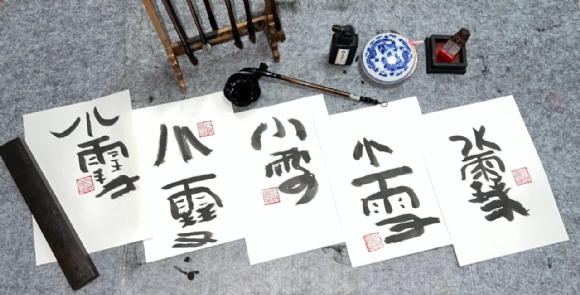 小雪
小雪
小雪
小雪
小雪